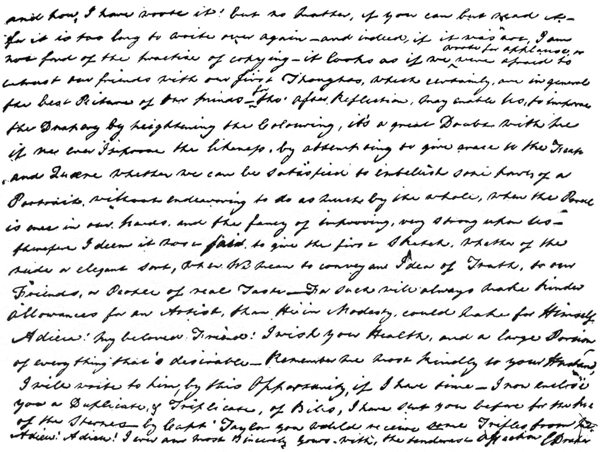 and how, I have wrote it! but no matter, if you can but read it –
for it is too long to write over again – and indeed, if it was not, I am
not fond of the practice of copying – it looks as if we wrote for applause, or were afraid to
entrust our friends with our first Thoughts, which certainly, are in general
the best Picture of Our minds – & tho' after Reflection, may enable Us, to improve
the Drapery by heightening the Colouring, it's a great Doubt with me
if we ever Improve the likeness, by attempting to give grace to the Traits
and Quære whether we can be satisfied to embellish some parts of a
Portrait, without endeavouring to do as much by the whole, when the Pencil
is once in our hands, and the fancy of improving, very strong upon Us –
therefore I deem it most fair to give the first Sketch, whether of the
rude or elegant sort, when We mean to convey an Idea of Truth, to our
Friends, or People of real Taste – For such will always make kinder
allowances for an Artist, than He in Modesty, could make for Himself
Adieu! my beloved Friend! I wish you Health, and a large Portion
of everything that's desirable – Remember me most kindly to your
I will write to him, by this Opportunity, if I have time – I now enclose
you a Duplicate, & Triplicate, of Bills, I have sent you before for the use
of the Sternes – by Capt Taylor you would receive some Trifles from
Adieu! Adieu! I ever am most Sincerely yours – with the tenderest Affection E Draper